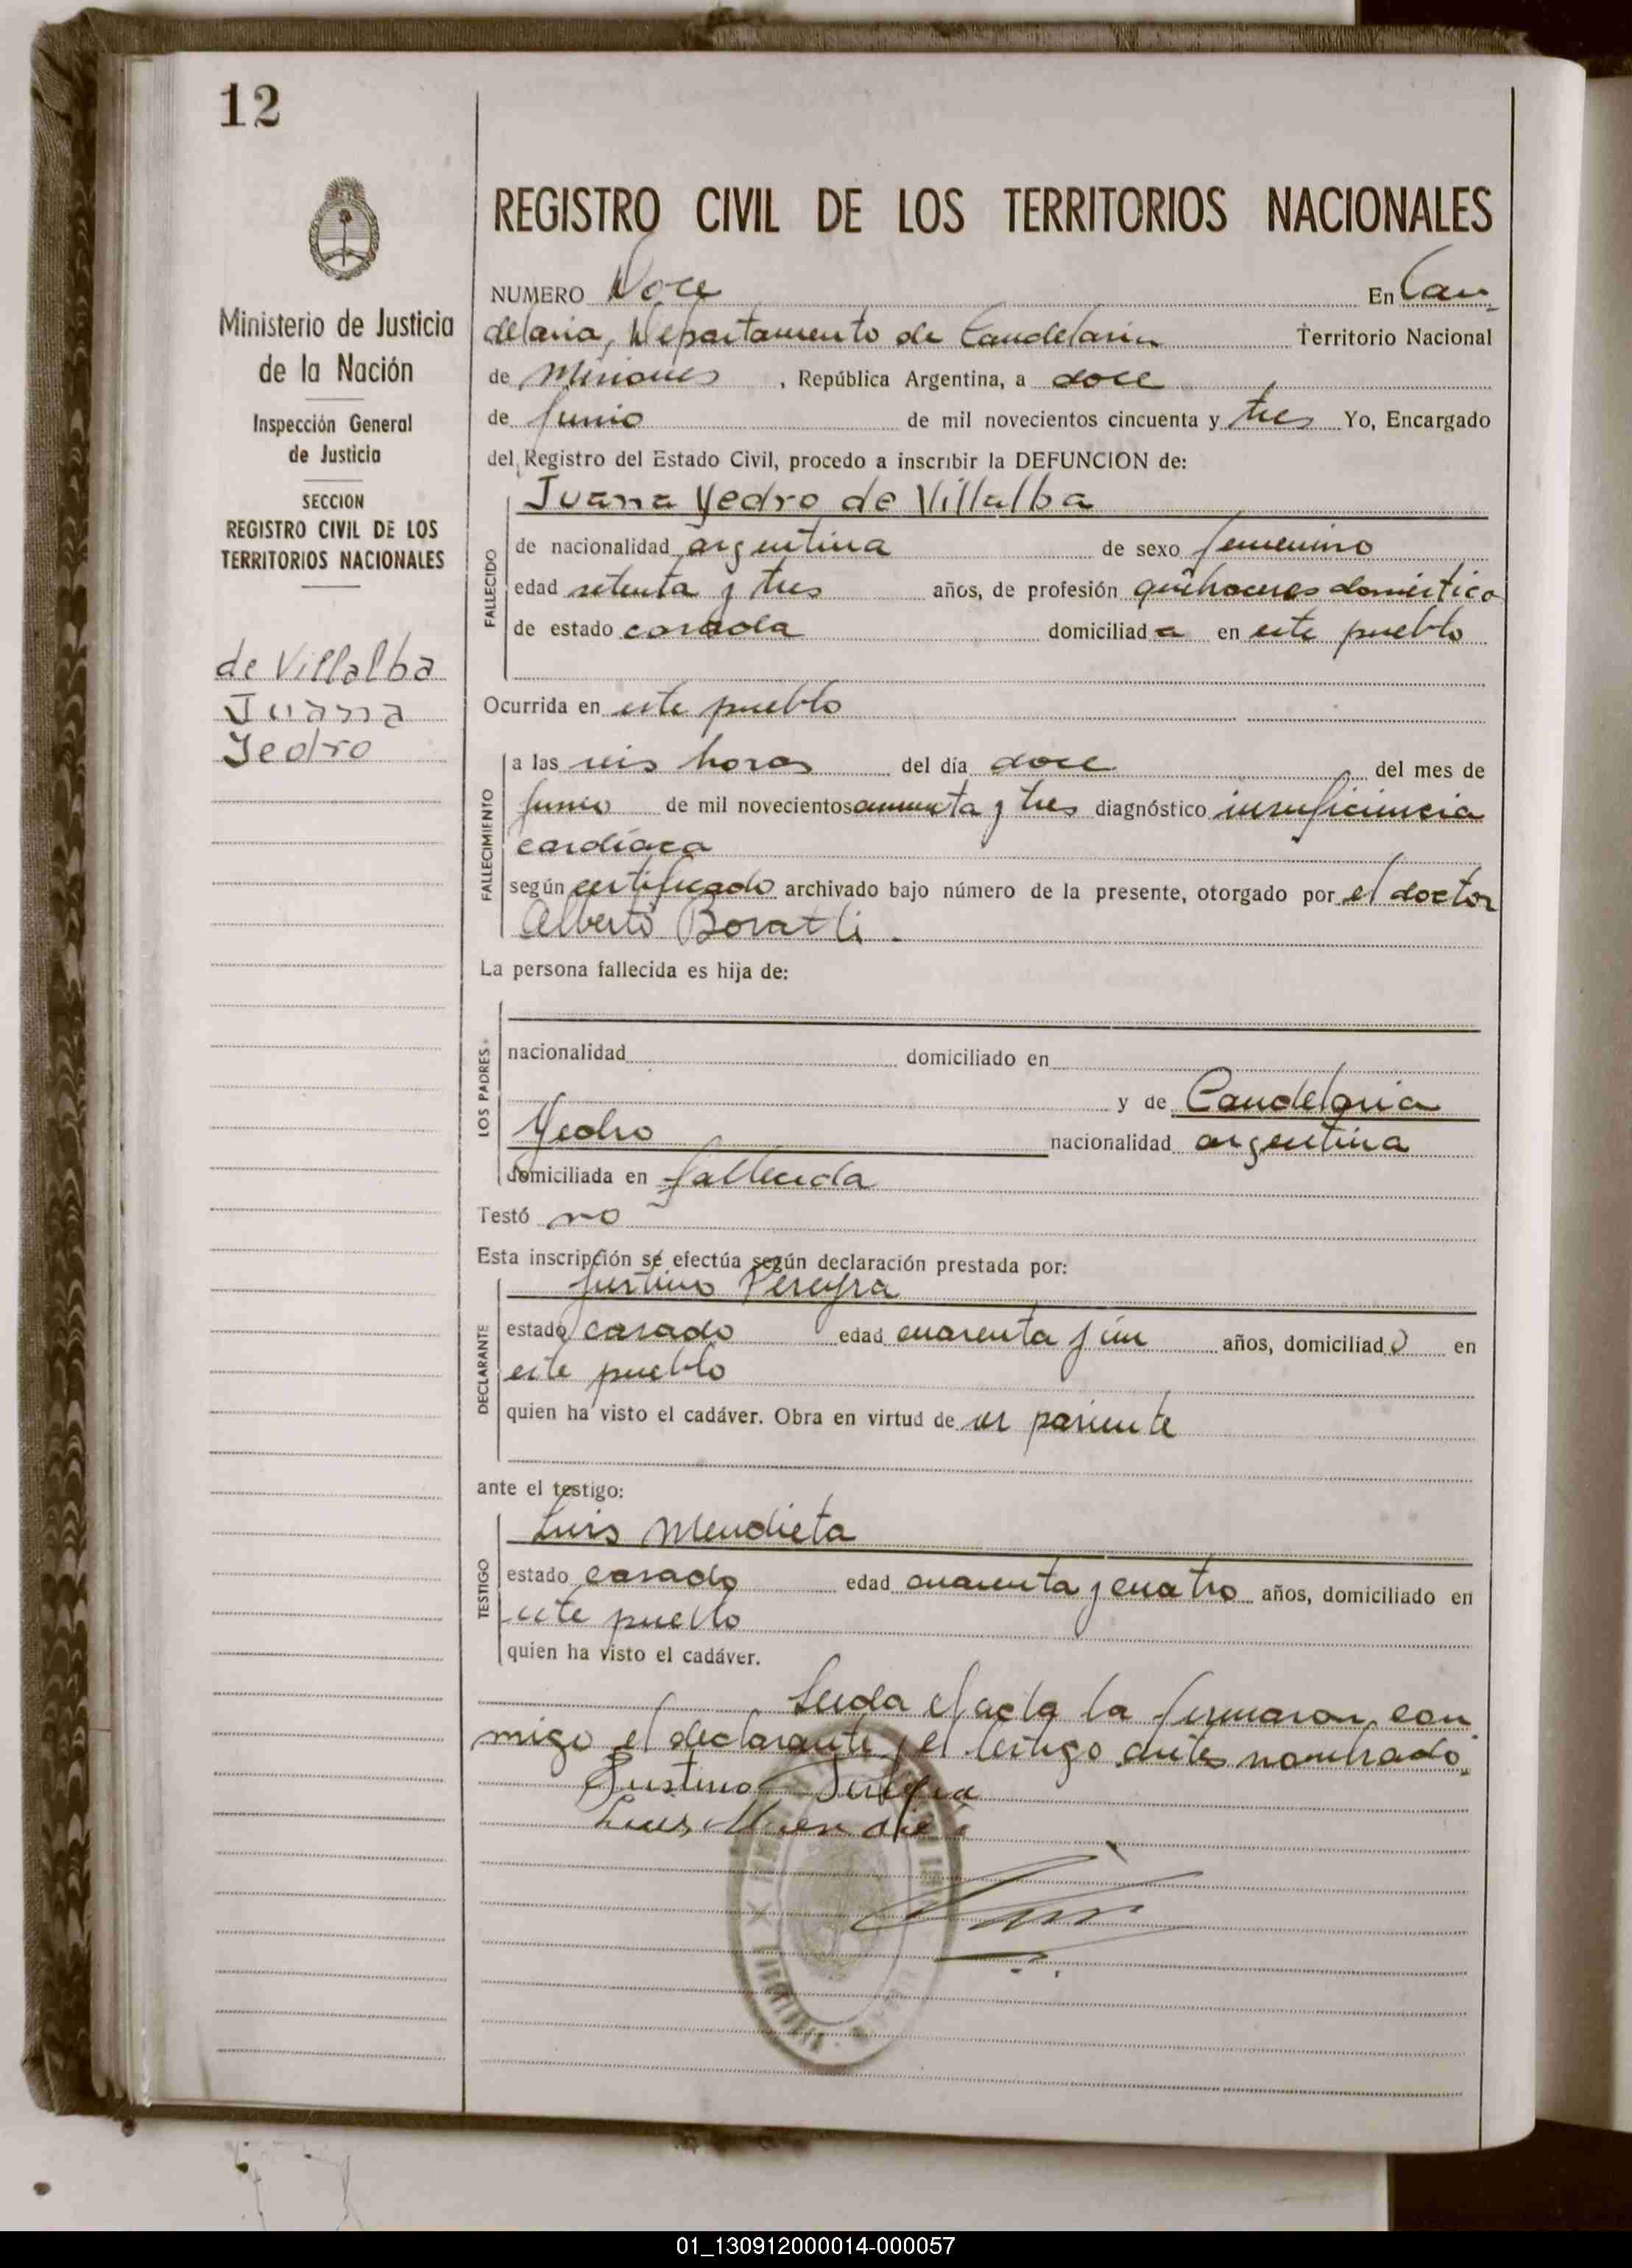 12
REGISTRO CIVIL DE LOS TERRITORIOS NACIONALES
Ministerio de Justicia
de la Nación
Inspección General
de Justicia
SECCION
REGISTRO CIVIL DE LOS
TERRITORIOS NACIONALES
de Villalba
Juana
Yedro
NUMERO Doce En Can-
delaria, Departamento de Candelaria Territorio Nacional
de Misiones, República Argentina, a doce
de Junio de mil novecientos cincuenta y tres Yo, Encargado
del Registro del Estado Civil, procedo a inscribir la DEFUNCION de:
Juana Yedro de Villalba
FALLECIDO
de nacionalidad argentina de sexo femenino
edad setenta y tres años, de profesión quehaceres domestico
de estado casada domiciliada en este pueblo
Ocurrida en este pueblo
FALLECIMIENTO
a las seis horas del día doce del mes de
Junio de mil novecientos cincuenta y tres diagnóstico insuficiencia
cardíaca
según certificado archivado bajo número de la presente, otorgado por el doctor
Alberto
La persona fallecida es hija de:
LOS PADRES
nacionalidad domiciliado en
y de Candelaria
Yedro nacionalidad argentina
domiciliada en fallecida
Testó no
Esta inscripción se efectúa según declaración prestada por:
Justino Pereyra
DECLARANTE
estado casado edad cuarenta y un años, domiciliado en
este pueblo
quien ha visto el cadáver. Obra en virtud de ser pariente
ante el testigo:
Luis Mendieta
TESTIGO
estado casado edad cuarenta y cuatro años, domiciliado en
este pueblo
quien ha visto el cadáver.
Leida el acta la firmaron con
migo el declarante y el testigo antes nombrado.
Justino Pereyra
Luis Mendieta
01_130912000014-000057